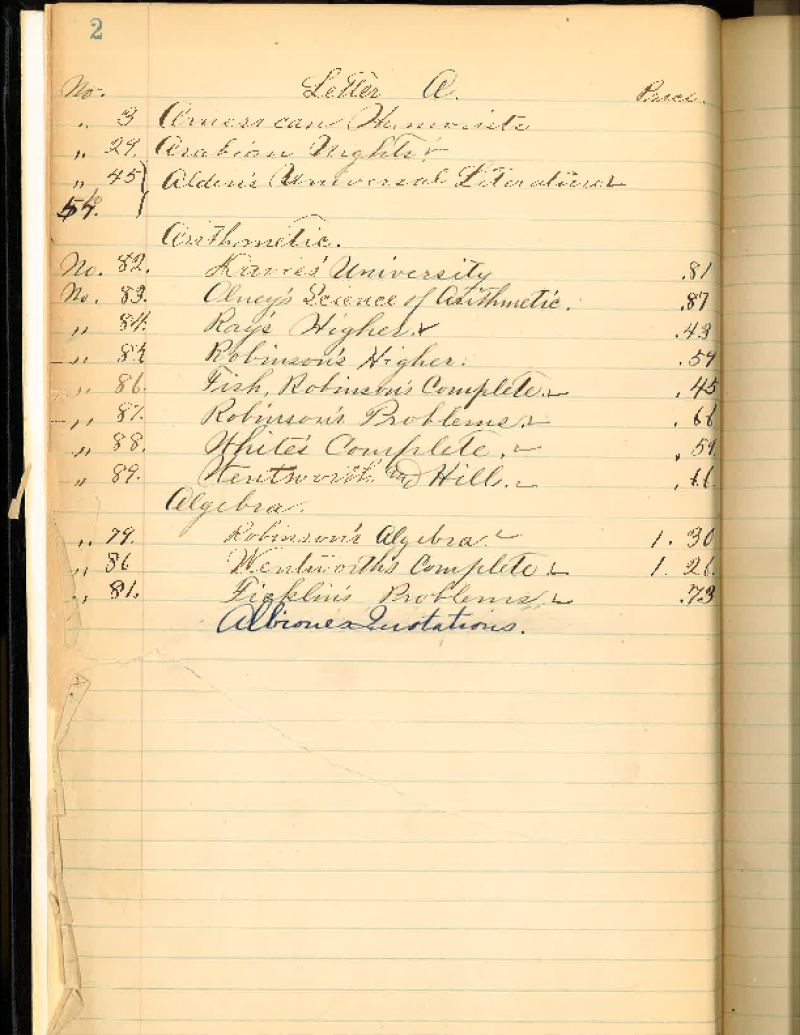 2
No. Letter A. Price.
„ 3 American Humorists
„ 29. Arabian Nights ✓
„ 45 } Alden's Universal Literature ✓
54. }
Arithmetic.
No. 82. Davies' University .81
No. 83. Olney's Science of Arithmetic. .87
„ 84. Ray's Higher. ✓ .43
„ 85 Robinson's Higher. .59
„ 86. Fish, Robinson's Complete. ✓ .45
„ 87. Robinson's Problems. ✓ .66
„ 88. White's Complete. ✓ .59
„ 89. Wentworth and Hill. ✓ .66
Algebra.
„ 79. Robinson's Algebra. ✓ 1.30
„ 86 Wentworth's Complete ✓ 1.26
„ 81. Ficklin's Problems, ✓ .73
Quotations.